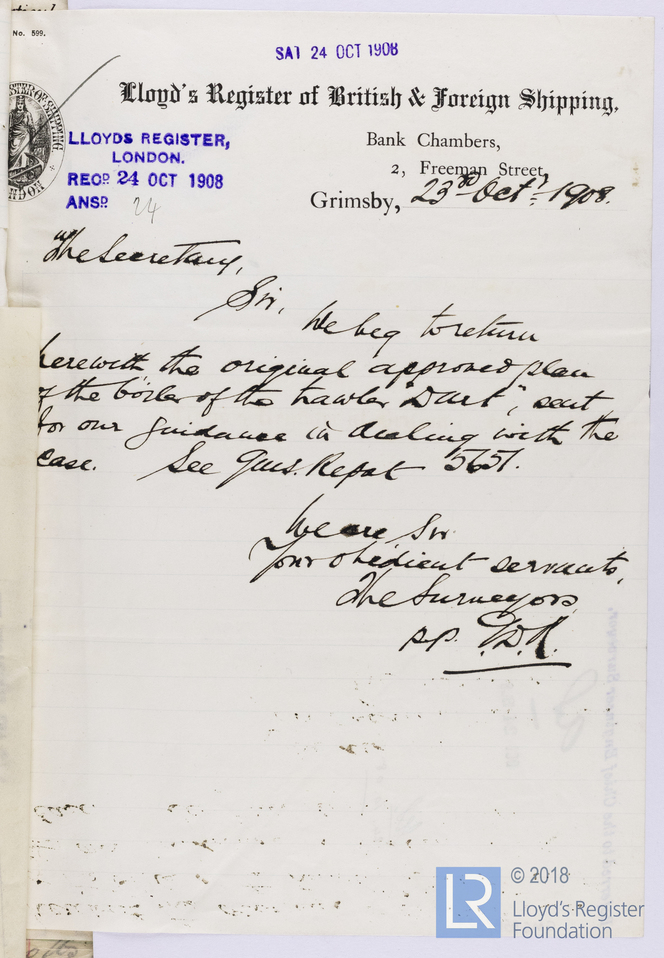 No. 599.
SAT 24 OCT 1908
Lloyd's Register of British & Foreign Shipping,
Bank Chambers,
2, Freeman Street,
Grimsby, 23rd Octr. 1908.
LLOYDS REGISTER,
LONDON.
RECD. 24 OCT 1908
ANSD. 24
The Secretary,
Sir,
We beg to return
herewith the original approved plan
of the boiler of the trawler "Dart", sent
for our guidance in dealing with the
case. See Gms. Report 5651.
We are, Sir
Your obedient servants,
The Surveyors
p.p.
© 2018
LR
Lloyd's Register
Foundation